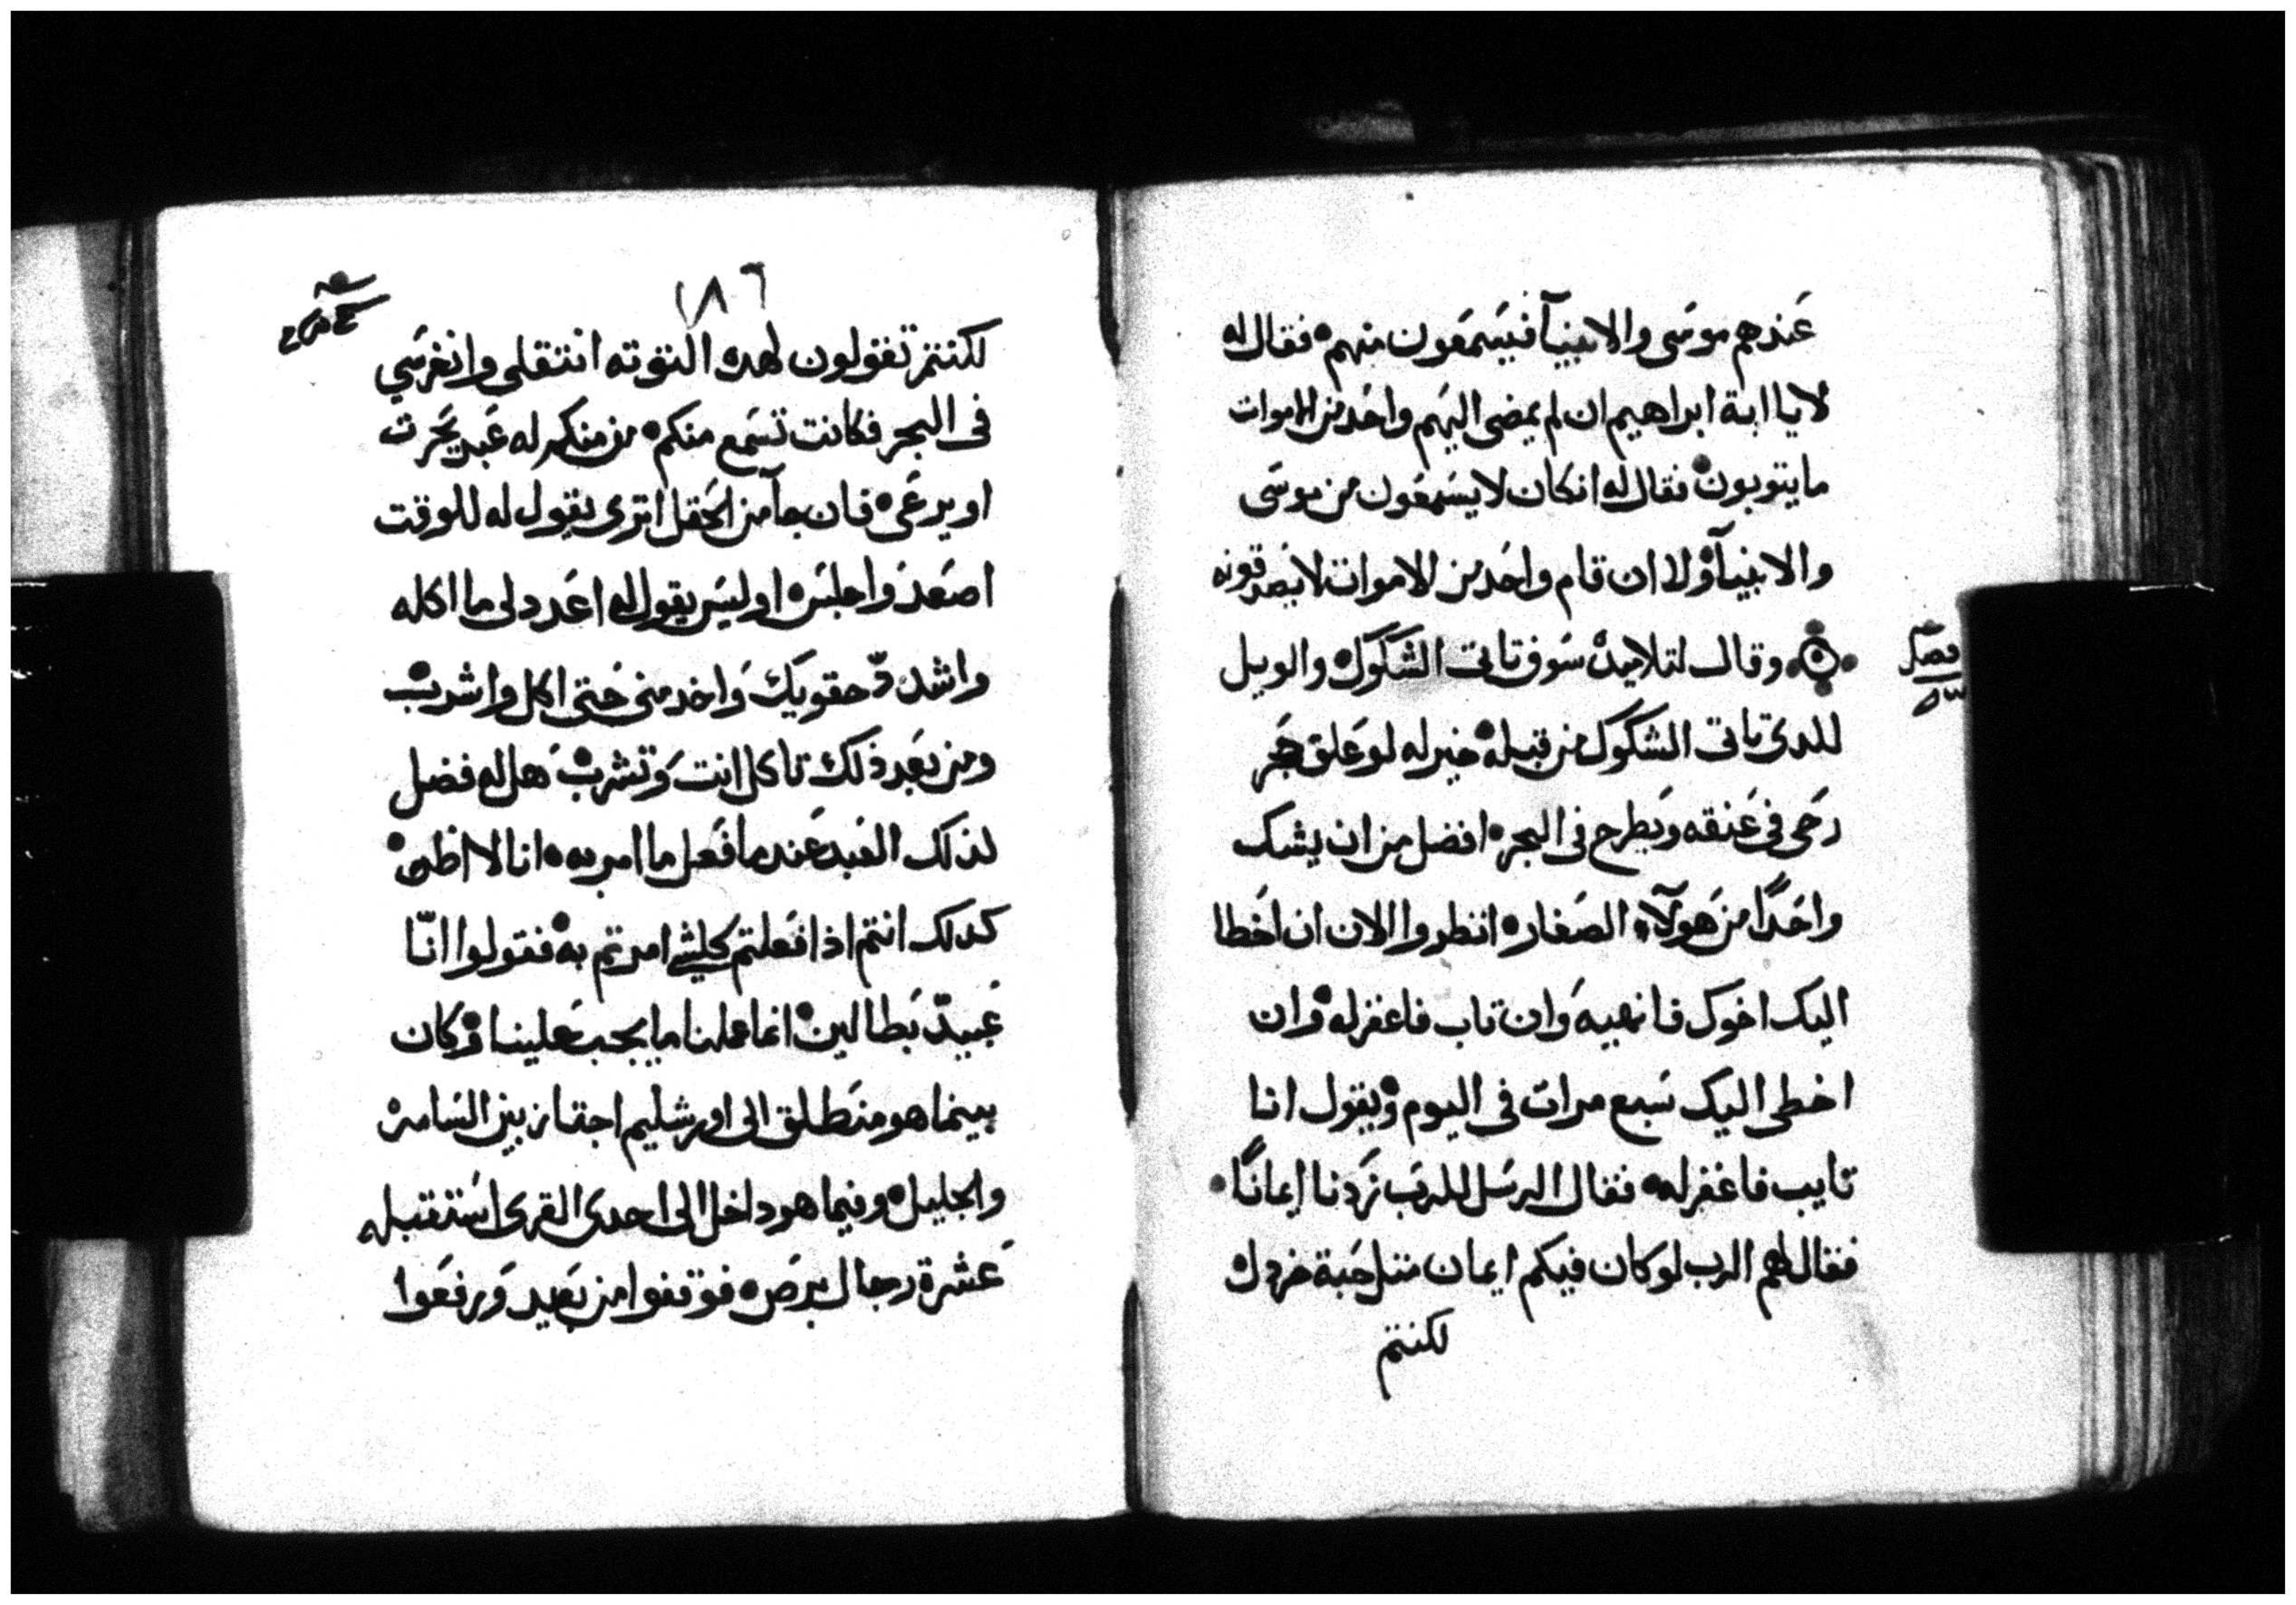 عندهم موسى والانبيآ فيسمعون منهم فقال له
لا يا ابة ابراهيم ان لم يمضى اليهم واحد من الاموات
ما يتوبون فقال له انكان لا يسمعون من موسى
والانبيآ ولا ان قام واحد من الاموات لا يصدقونه
وقال لتلاميده سوف تاتى الشكوك والويل
للدى تاتى الشكوك من قبله خير له لو علق حجر
رحى فى عنقه ويطرح فى البحر افضل من ان يشك
واحدًا من هولآء الصغار انظروا الان ان اخطا
اليك اخوك فانهيه وان تاب فاغفر له وان
اخطى اليك سبع مرات فى اليوم ويقول انا
تايب فاغفر له فقال الرسل للرب زدنا ايمانًا
فقال لهم الرب لو كان فيكم ايمان مثل حبة خردل
لكنتم
فصل
١٨٦
لكنتم تقولون لهده التوته انتقلى وانغرسي
فى البحر فكانت تسمع منكم من منكم له عبد يحرت
او يرعى فان جآ من الحقل اترى يقول له للوقت
اصعد واجلس او ليس يقول له اعدد لى ما اكله
واشدد حقويك واخدمنى حتى اكل واشرب
ومن بعد ذلك تاكل انت وتشرب هل له فضل
لذلك العبد عندما فعل ما امر به انا لا اظن
كدلك انتم اذا فعلتم كلشي امرتم به فقولوا انّا
عبيد بطالين انما عملنا ما يجب علينا وكان
بينما هو منطلق الى اورشليم اجتاز بين السامره
والجليل وفيما هو داخل الى احدى القرى استقبله
عشرة رجال برص فوقفوا من بعيد ورفعوا